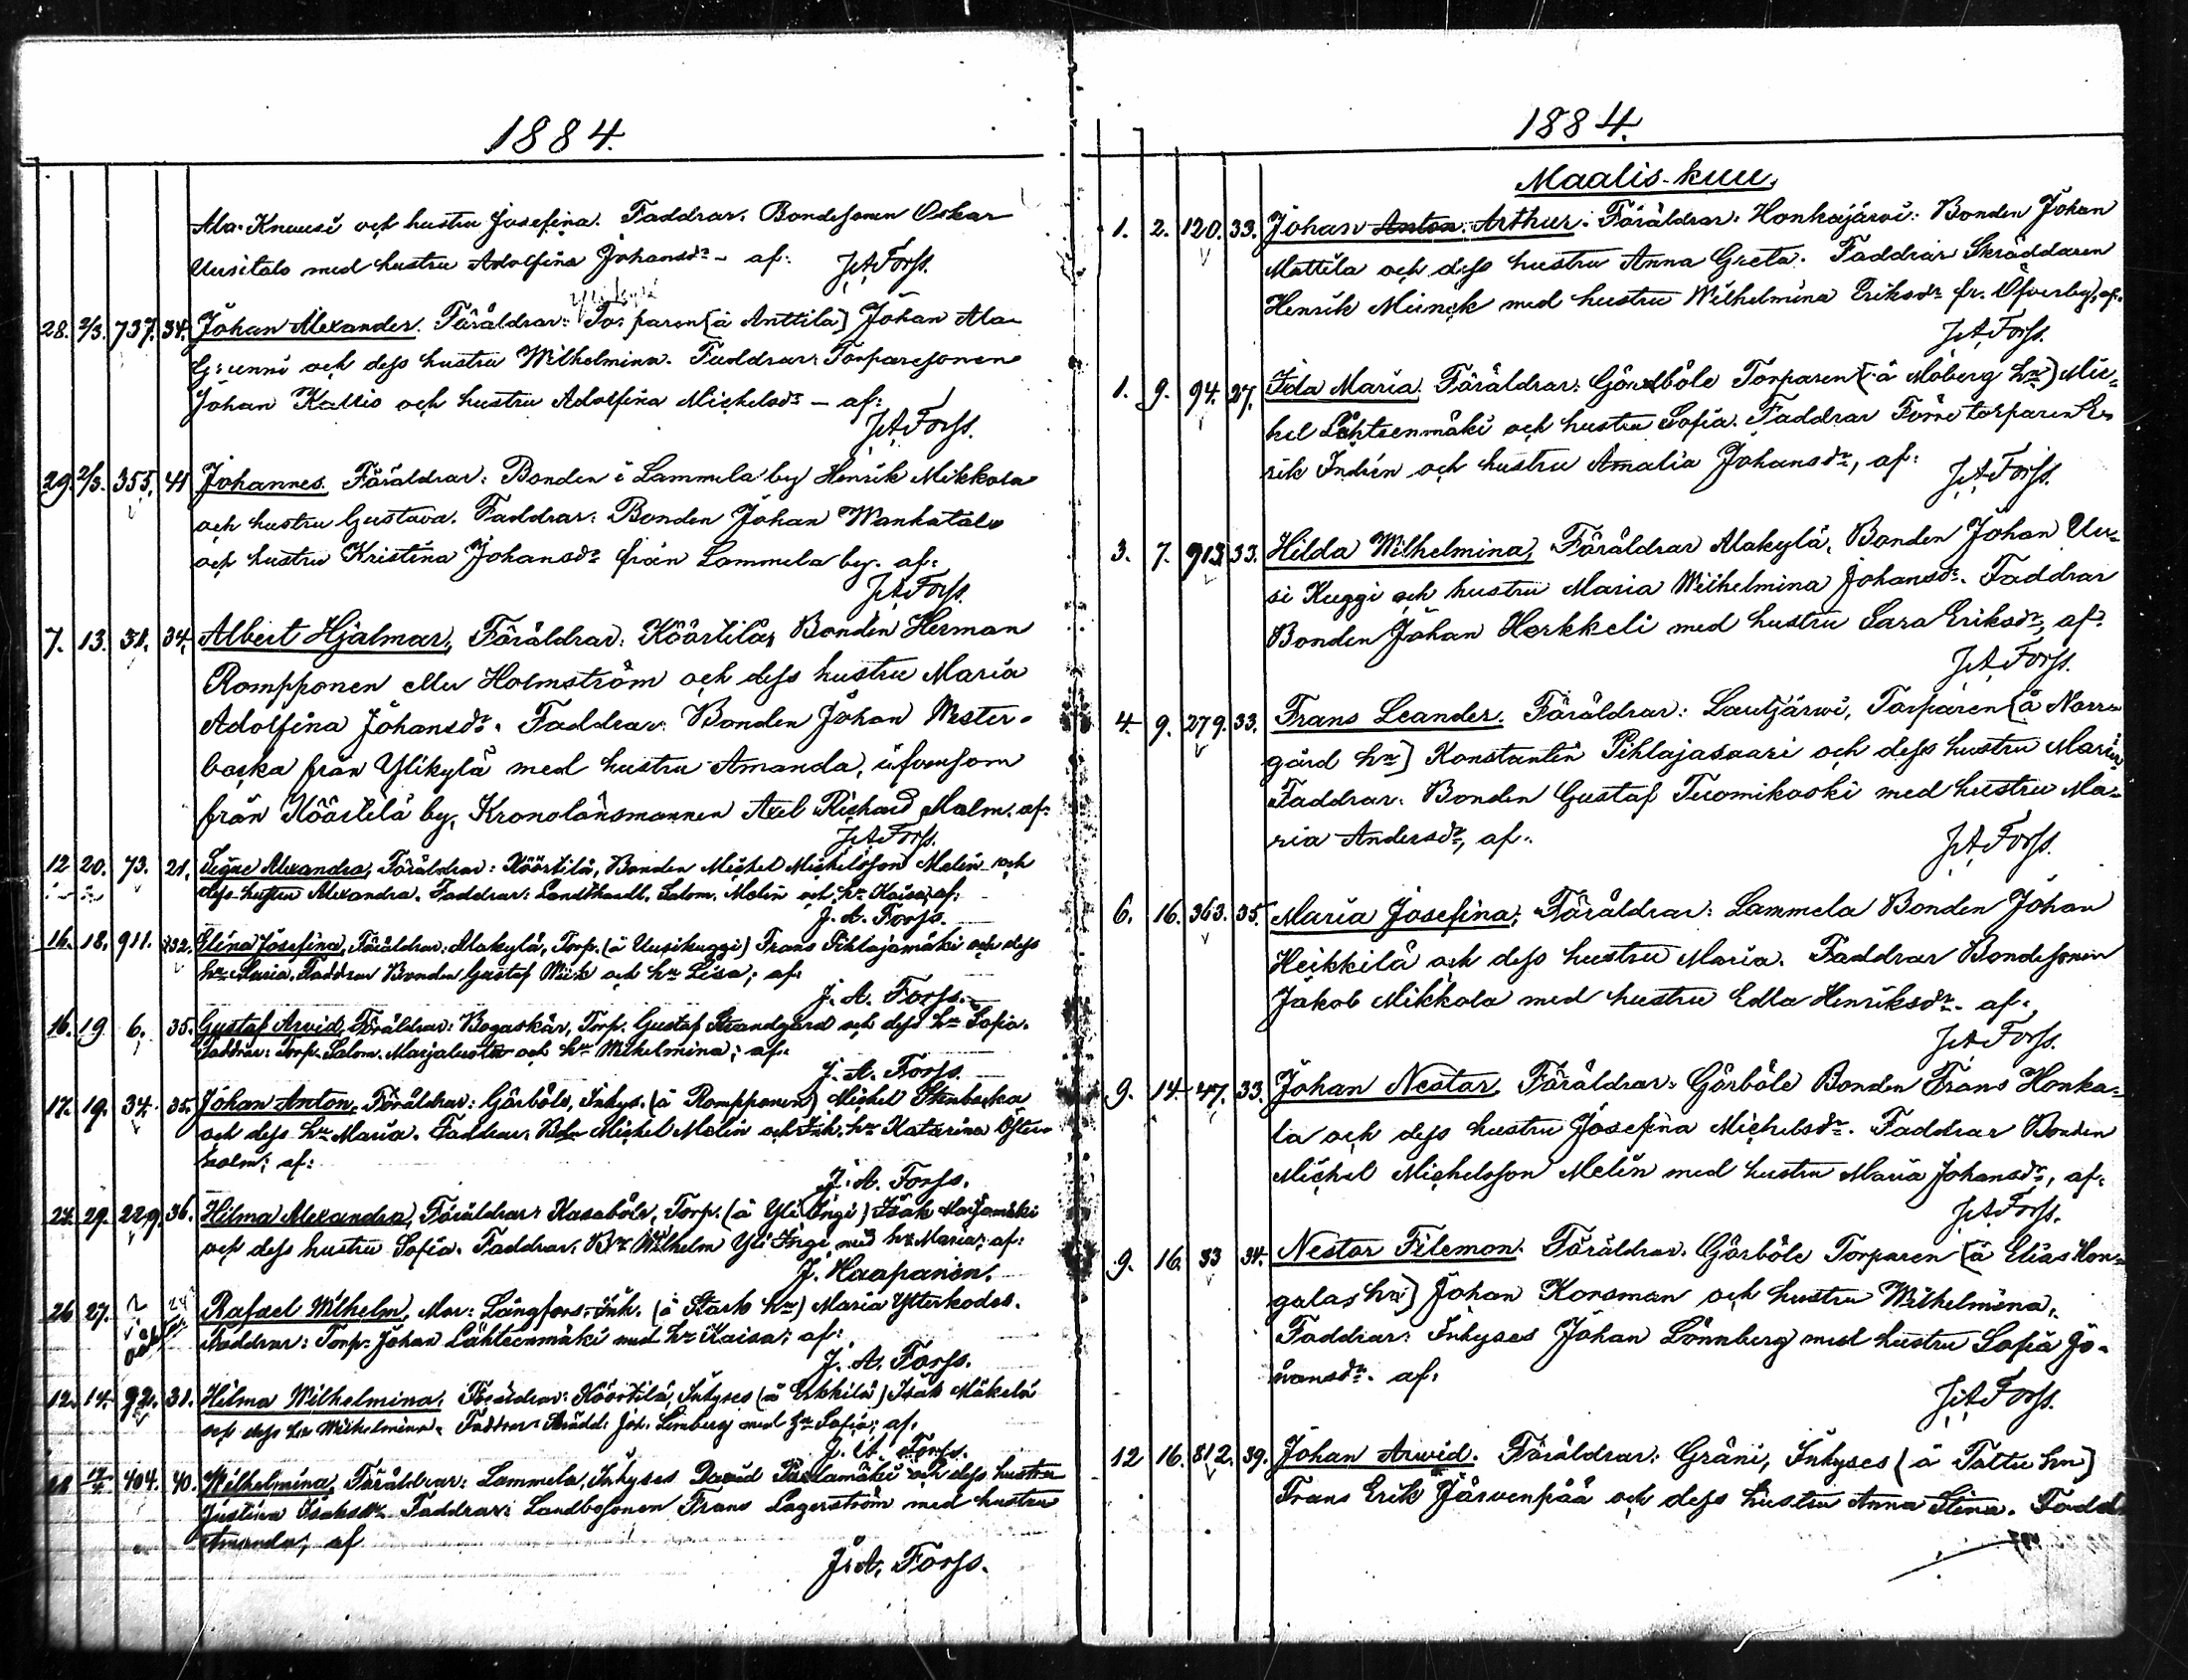 1884.
Ala-Knuusi och hustru Josefina. Faddrar: Bondesonen Oskar
Uusitalo med hustru Adolfina Johansdr - af: J.A. Forss.
28. 2/3. 737. 34. Johan Alexander. Föräldrar: Torparen (å Anttila) Johan Ala
Grunni och dess hustru Wilhelmina. Faddrar: Torparesonen
Johan Kallio och hustru Adolfina Michelsdr - af:
J.A. Forss.
29. 2/3. 355. 41 Johannes. Föräldrar: Bonden i Lammela by Henrik Mikkola
och hustru Gustava. Faddrar: Bonden Johan Wankatalo
och hustru Kristina Johansdr från Lammela by. af:
J.A. Forss.
7. 13. 31. 34. Albert Hjalmar, Föräldrar: Köörtilä, Bonden Herman
Rompponen eller Holmström och dess hustru Maria
Adolfina Johansdr. Faddrar: Bonden Johan Wester-
backa från Ylikylä med hustru Amanda, äfvensom
från Köörtilä by, Kronolänsmannen Axel Richard Malm. af:
J.A. Forss.
12 20. 73. 21. Signe Alexandra, Föräldrar: Köörtilä, Bonden Michel Michelsson Melin och
dess hustru Alexandra. Faddrar: Landthandl. Salom. Melin och hu Kaisa; af:
J. A. Forss.
16. 18. 911. 32. Elina Josefina, Föräldrar: Alakylä, Torp. (å Uusikuggi) Frans Pihlajamäki och dess
hu Maria. Faddrar Bonden Gustaf Wiik och hu Lisa; af:
J. A. Forss.
16. 19 6. 35. Gustaf Arvid, Föräldrar: Bogaskär, Torp. Gustaf Strandgård och dess hu Sofia.
Faddrar: Torp. Salom. Marjaluoto och hu Wilhelmina; af:
J. A. Forss.
17. 19. 34. 35. Johan Anton, Föräldrar: Gårböle, Inhys. (å Rompponen) Michel Stenbacka
och dess hu Maria. Faddrar: Bdn Michel Melin och Inh. hu Katarina Öster-
holm; af:
J. A. Forss.
24. 29. 229 36. Hilma Alexandra, Föräldrar: Kasaböle, Torp. (å Yli Ingi) Isak
och dess hustru Sofia. Faddrar: Wilhelm Yli Ingi med hu Maria; af:
J. Haapanen.
26 27. Rafael Wilhelm, Mor: Långfors, Inh. (å Stark hn) Maria Ytterkodes.
Faddrar: Torp. Johan Lähteenmäki med hu Kaisa; af:
J. A. Forss.
12. 14. 92. 31. Hilma Wilhelmina, Föräldrar: Köörtilä, Inhyses (å Erkkilä) Isak Mäkelä
och dess hu Wilhelmina. Faddrar: Skrädd. Joh. Lemberg med hu Sofia; af.
J. A. Forss.
404. 40. Wilhelmina, Föräldrar: Lammela, Inhyses David och dess hustru
Justina Isaksdr. Faddrar: Landbosonen Frans Lagerström med hustru
Amanda; af
J. A. Forss.
1884.
Maalis-kuu.
1. 2. 120. 33. Johan Anton. Arthur. Föräldrar: Honkajärvi: Bonden Johan
Mattila och dess hustru Anna Greta. Faddrar Skräddaren
Henrik Munck med hustru Wilhelmina Eriksdr fr. Öfverby, af.
J.A. Forss.
1. 9. 94. 27. Ida Maria. Föräldrar: Torparen (å Moberg hn) Mic-
hel Lähteenmäki och hustru Sofia. Faddrar Förre torparen E-
rik Indrén och hustru Amalia Johansdr, af:
J.A. Forss.
3. 7. 913 33. Hilda Wilhelmina, Föräldrar Alakylä, Bonden Johan Uu-
si Kuggi och hustru Maria Wilhelmina Johansdr. Faddrar
Bonden Johan Herkkeli med hustru Sara Eriksdr, af:
J.A. Forss.
4. 9. 279. 33. Frans Leander. Föräldrar: Lautjärwi, Torparen (å Norr-
gård hn) Konstantin Pihlajasaari och dess hustru Maria
Faddrar: Bonden Gustaf Tuomikoski med hustru Ma-
ria Andersdr, af:
J.A. Forss.
6. 16. 363. 35. Maria Josefina, Föräldrar: Lammela Bonden Johan
Heikkilä och dess hustru Maria. Faddrar Bondesonen
Jakob Mikkola med hustru Edla Henriksdr. af:
J.A. Forss.
9. 14. 47. 33. Johan Nestor, Föräldrar: Gårböle Bonden Frans Honka-
la och dess hustru Josefina Michelsdr. Faddrar Bonden
Michel Michelsson Melin med hustru Maria Johansdr, af:
J.A. Forss.
9. 16. 33 34. Nestor Filemon. Föräldrar: Gårböle Torparen (å Elias Hon-
galas hn) Johan Korsman och hustru Wilhelmina,
Faddrar: Inhyses Johan Lönnberg med hustru Sofia Jo-
hansdr. af:
J.A. Forss.
12 16. 812. 39. Johan Arwid. Föräldrar: Gråni, Inhyses (å Tattu hn)
Frans Erik Järvenpää och dess hustru Anna Stina. Fadd